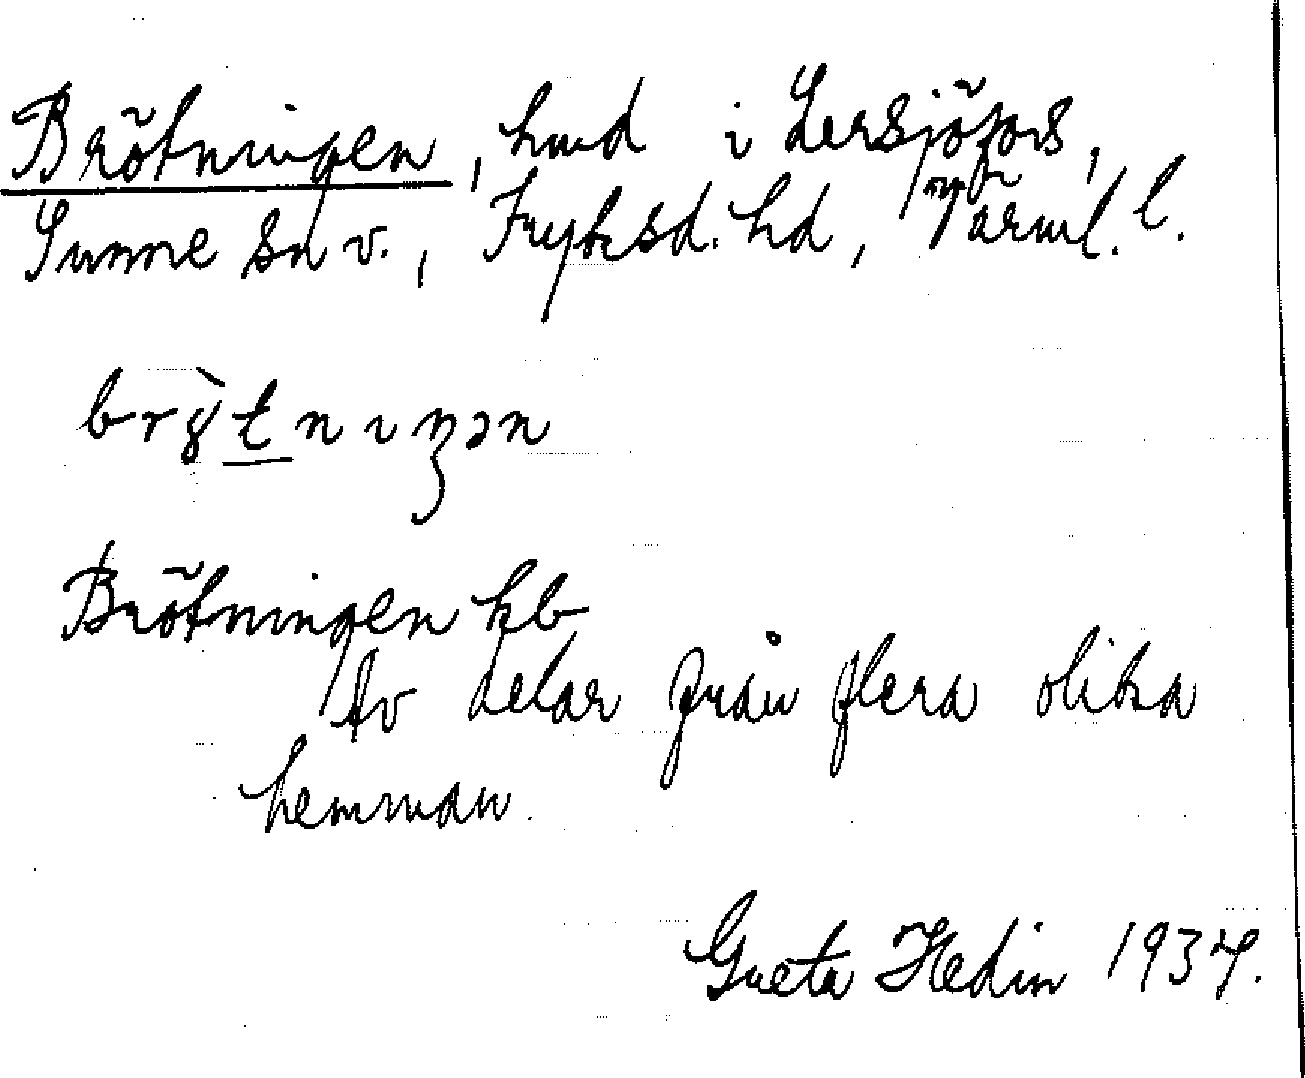 Brötningen, hmd i Lersjöfors,
Sunne sn v., Fryksd. hd, Värml. l.
brỳtnıŋən
Brötningen kb
Av delar från flera olika
hemman.
Greta Hedin 1937.